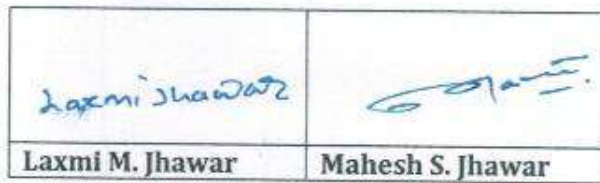 Laxmi Jhawar
Laxmi M. Jhawar
Mahesh S. Jhawar